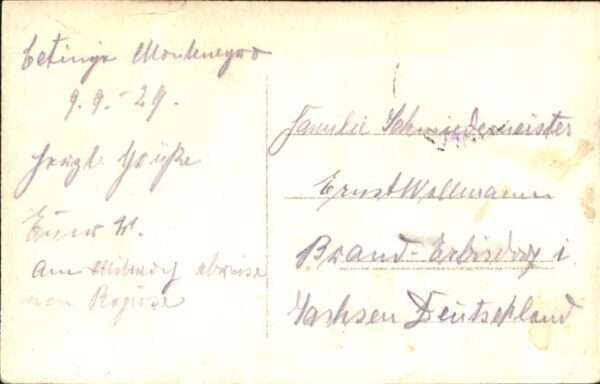 Cetinje Montenegro
9.9.-29.
Herzl. Grüße
Euer W.
Am Mittwoch abreise
von Raguse
Familie Schmiedemeister
Ernst Wollmann
Brand-Erbisdorf i.
Sachsen Deutschland